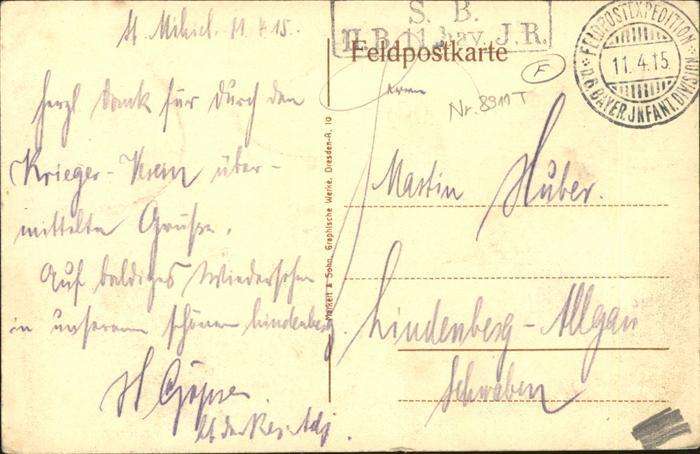 St. Mihiel. 11.4.15.
Herzl Dank für durch den
Krieger-Verein über-
mittelte Grüße.
Auf baldiges Wiedersehen
in unserem schönen Lindenberg.
H
Lt der Res. Adj.
S. B.
II. B. 11. bay. J. R.
Feldpostkarte
FELDPOSTEXPEDITION
11.4.15
D. 6. BAYER. INFANT. DIVISION
F
Nr. 8911 T
Herrn
Martin Huber.
Lindenberg-Allgäu
Schwaben
Markert & Sohn, Graphische Werke, Dresden-A. 19